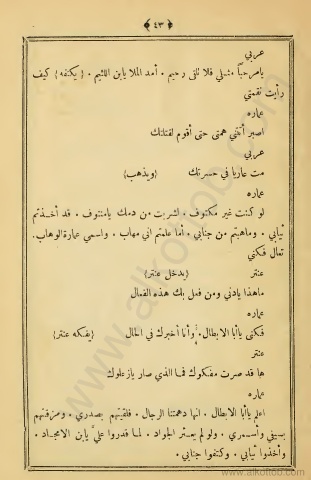 ﴿ ٤٣ ﴾
عربي
يامرحباً مثلي فلا تلقى رحيم . أمد الملا يابن اللئيم . {يكتفه} كيف
رأيت نقمتي
عماره
اصبر أتتني همتي حتى أقوم لقتلتك
عربي
مت عاريا في حسرتك {ويذهب}
عماره
لو كنت غير مكتوف . لشربت من دمك يامنتوف . قد أخذتم
ثيابي . وماهبتم من جنابي . أما علمتم اني مهاب . واسمي عمارة الوهاب .
تعال فكني
عنتر {يدخل عنتر}
ماهذا يادني ومن فعل بك هذه الفعال
عماره
فكني ياأبا الابطال . وأنا أخبرك في الحال {يفكه عنتر}
عنتر
ها قد صرت مفكوك فما الذي صار يازعلوك
عماره
اعلم ياأبا الابطال . انها دهمتنا الرجال . فلقيتهم بصدري . ومزقتهم
بسيفي وأسمري . ولو لم يعثر الجواد . لما قدروا عليّ يابن الامجاد .
وأخذوا ثيابي . وكتفوا جنابي .
www.alkottob.com
www.alkottob.com